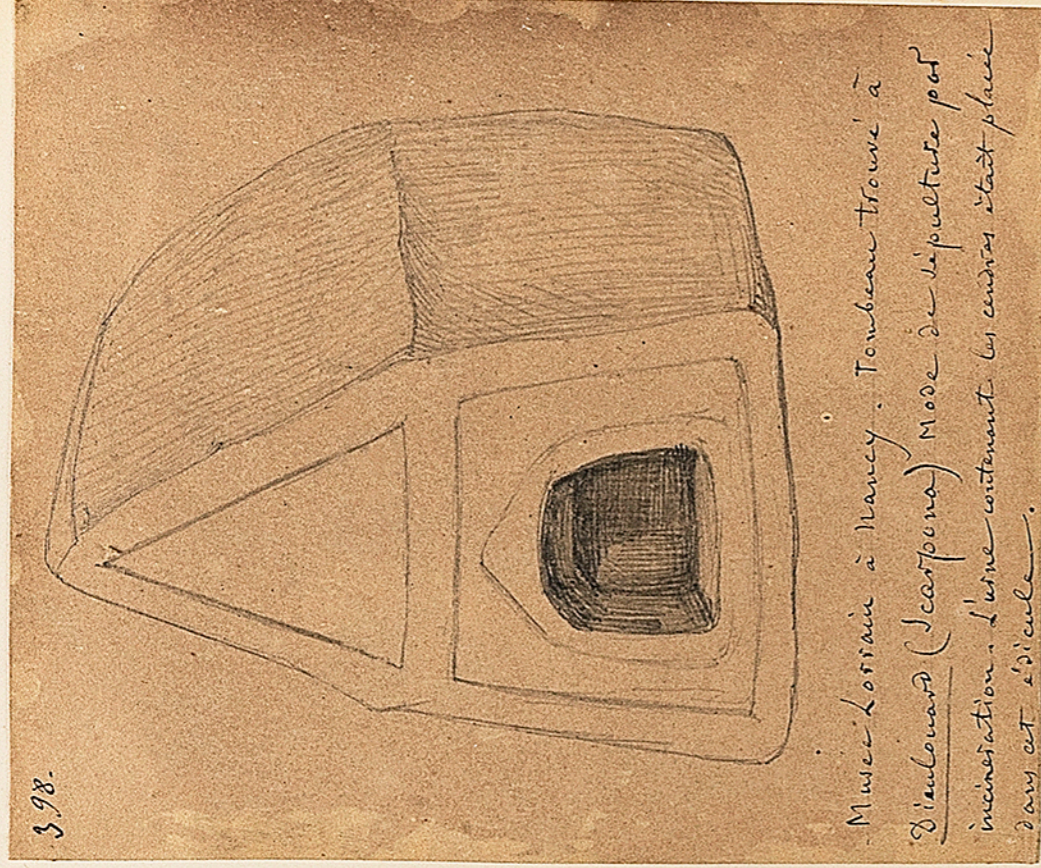 398.
Musée Lorrain à Nancy. Tombeau trouvé à
Dieulouard (Scarpona) Mode de sépulture par
incinération. L'urne contenant les cendres était placée
dans cet édicule.